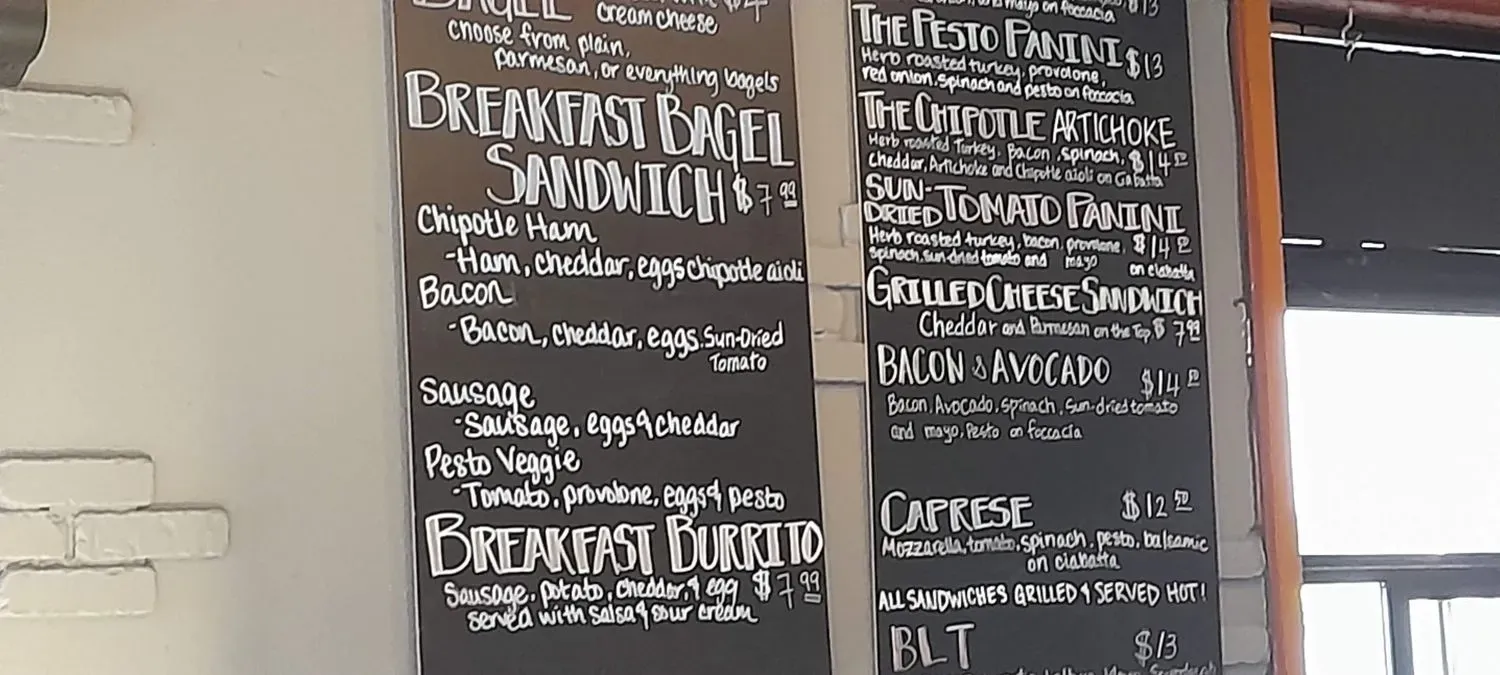 BAGEL cream cheese
choose from plain,
parmesan, or everything bagels
BREAKFAST BAGEL
SANDWICH $7.99
Chipotle Ham
-Ham, cheddar, eggs chipotle aioli
Bacon
-Bacon, cheddar, eggs. Sun-Dried
Tomato
Sausage
-Sausage, eggs & cheddar
Pesto Veggie
-Tomato, provolone, eggs & pesto
BREAKFAST BURRITO
Sausage, potato, cheddar, & egg $7.99
served with salsa & sour cream
mayo on foccacia $13
THE PESTO PANINI $13
Herb roasted turkey, provolone,
red onion, spinach and pesto on foccacia
THE CHIPOTLE ARTICHOKE
Herb roasted Turkey, Bacon, spinach, $14
cheddar, Artichoke and Chipotle aioli on Ciabatta
SUN-
DRIED TOMATO PANINI
Herb roasted turkey, bacon, provolone, $14
spinach, sun-dried tomato and mayo on ciabatta
GRILLED CHEESE SANDWICH
Cheddar and Parmesan on the Top $7.99
BACON & AVOCADO $14
Bacon, Avocado, spinach, sun-dried tomato
and mayo, Pesto on foccacia
CAPRESE $12.50
Mozzarella, tomato, spinach, pesto, balsamic
on ciabatta
ALL SANDWICHES GRILLED & SERVED HOT!
BLT $13